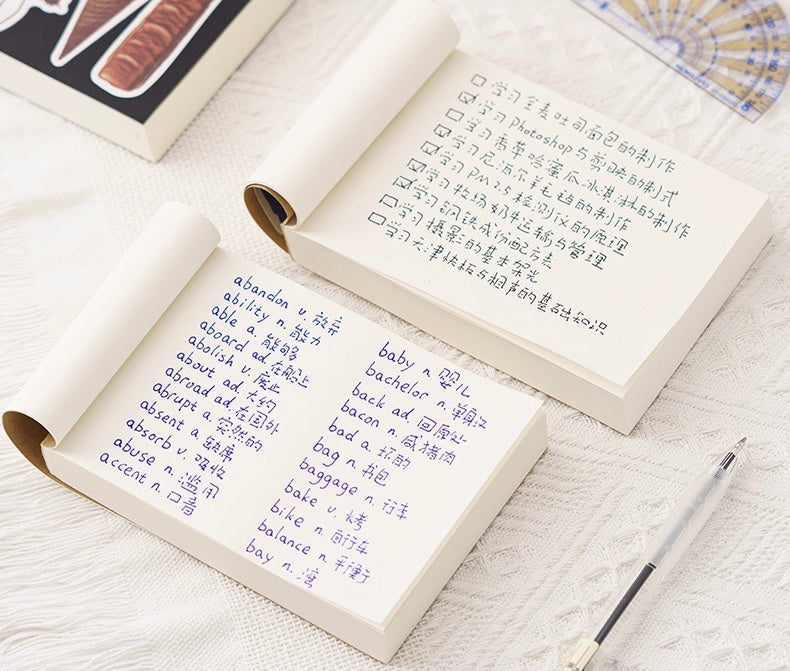 □ 学习全麦吐司面包的制作
☑ 学习Photoshop与剪映的制式
□ 学习香草哈蜜瓜冰淇淋的制作
☑ 学习尼泊尔羊毛毡的制作
☑ 学习PM2.5检测仪的原理
☑ 学习牧场奶牛运输与管理
□ 学习钢铁成份配方表
□ 学习摄影的基本架光
□ 学习天津快板与相声的基础知识
abandon v. 放弃
ability n. 能力
able a. 能够
aboard ad. 在船上
abolish v. 废止
about ad. 大约
abroad ad. 在国外
abrupt a. 突然的
absent a. 缺席
absorb v. 吸收
abuse n. 滥用
accent n. 口音
baby n. 婴儿
bachelor n. 单身汉
back ad. 回原处
bacon n. 咸猪肉
bad a. 坏的
bag n. 书包
baggage n. 行李
bake v. 烤
bike n. 自行车
balance n. 平衡
bay n. 湾